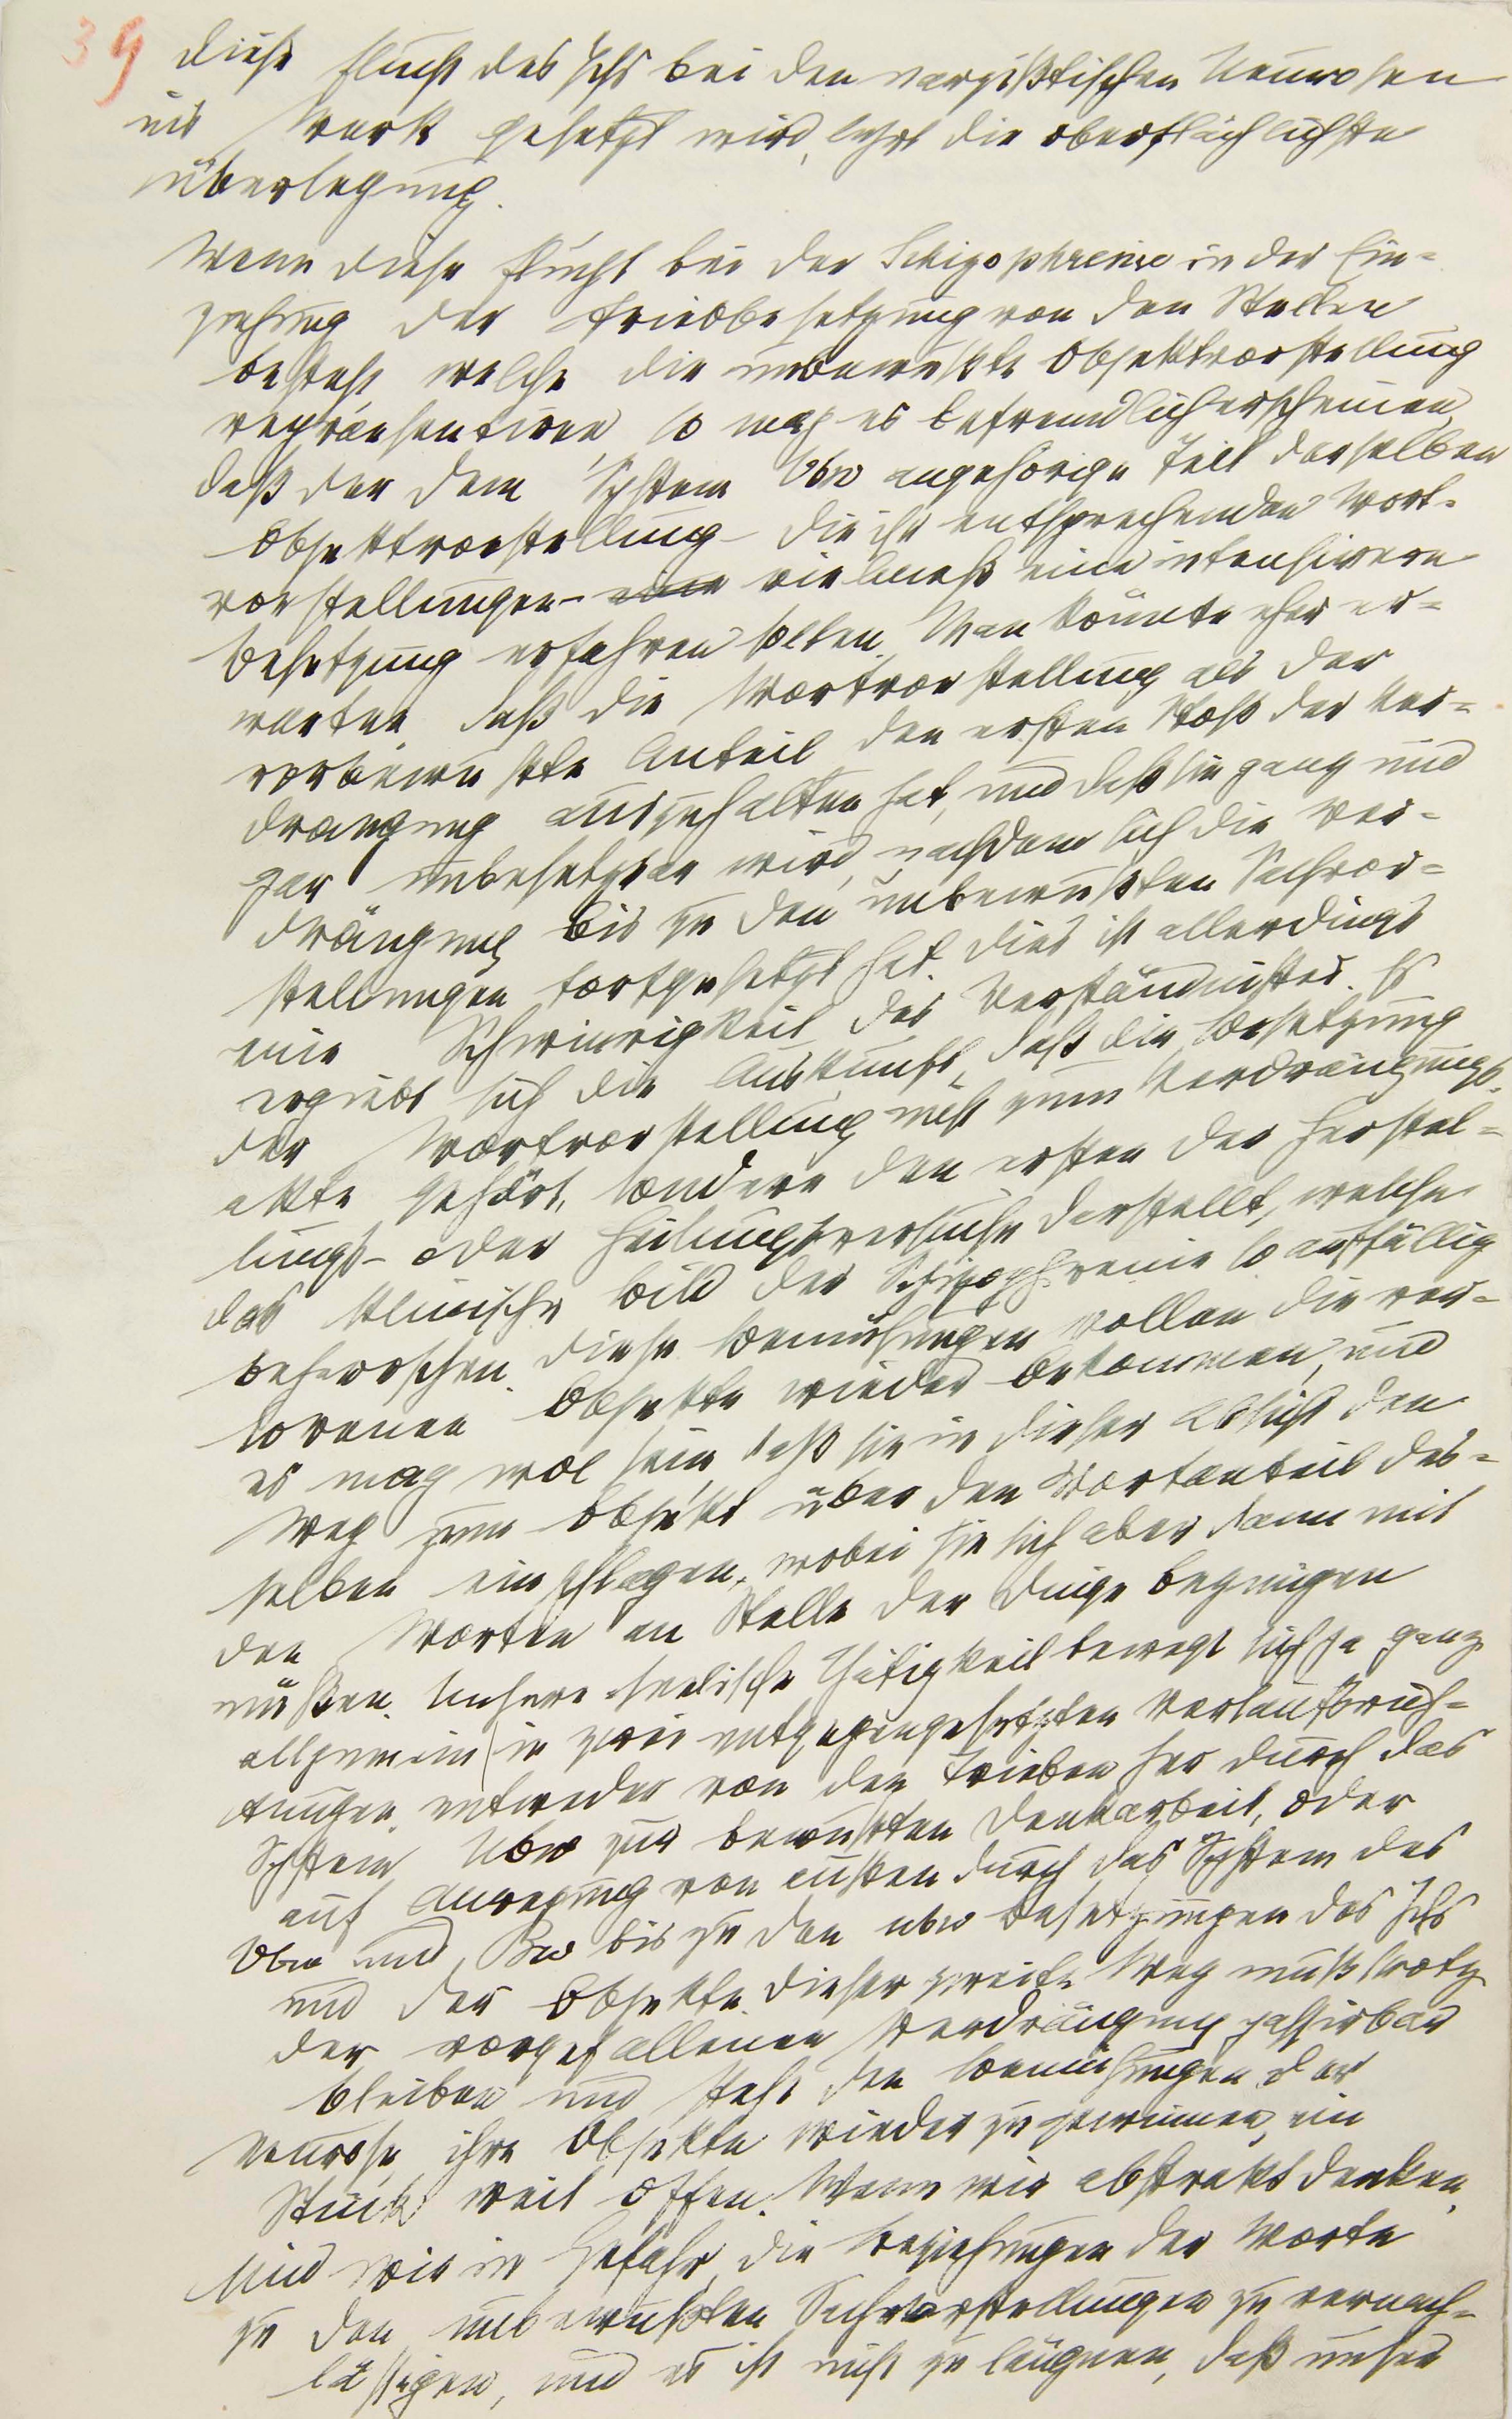 39 diese Flucht des Ichs bei den narzißtischen Neurosen
ins Werk gesetzt wird, lehrt die oberflächlichste
Überlegung.
Wenn diese Flucht bei der Schizophrenie in der Ein-
ziehung der Triebbesetzung von den Stellen
besteht, welche die unbewußte Objektvorstellung
repräsentiren, so mag es befremdlich erscheinen,
daß der dem System Vbw angehörige Teil derselben
Objektvorstellung – die ihr entsprechenden Wort-
vorstellungen – vielmehr eine intensivere
Besetzung erfahren sollen. Man könnte eher er-
warten, daß die Wortvorstellung als der
vorbewußte Anteil den ersten Stoß der Ver-
drängung auszuhalten hat, und daß sie ganz und
gar unbesetzbar wird, nachdem sich die Ver-
drängung bis zu den unbewußten Sachvor-
stellungen fortgesetzt hat. Dies ist allerdings
eine Schwierigkeit des Verständnisses. Es
ergiebt sich die Auskunft, daß die Besetzung
der Wortvorstellung nicht zum Verdrängungs-
akte gehört, sondern den ersten der Herstel-
lungs- oder Heilungsversuche darstellt, welche
das klinische Bild der Schizophrenie so auffällig
beherrschen. Diese Bemühungen wollen die ver-
lorenen Objekte wieder bekommen, und
es mag wol sein, daß sie in dieser Absicht den
Weg zum Objekt über den Wortanteil des-
selben einschlagen, wobei sie sich aber dann mit
den Worten an Stelle der Dinge begnügen
müßen. Unsere seelische Thätigkeit bewegt sich ja ganz
allgemein in zwei entgegengesetzten Verlaufsrich-
tungen, entweder von den Trieben her durch das
System Ubw zur bewußten Denkarbeit, oder
auf Anregung von außen durch das System des
Vbw und Bw bis zu den ubw Besetzungen des Ichs
und der Objekte. Dieser zweite Weg muß trotz
der vorgefallenen Verdrängung passirbar
bleiben und steht den Bemühungen der
Neurose, ihre Objekte wieder zu gewinnen, ein
Stück weit offen. Wenn wir abstrakt denken,
sind wir in Gefahr, die Beziehungen der Worte
zu den unbewußten Sachvorstellungen zu vernach-
lässigen, und es ist nicht zu läugnen, daß unser